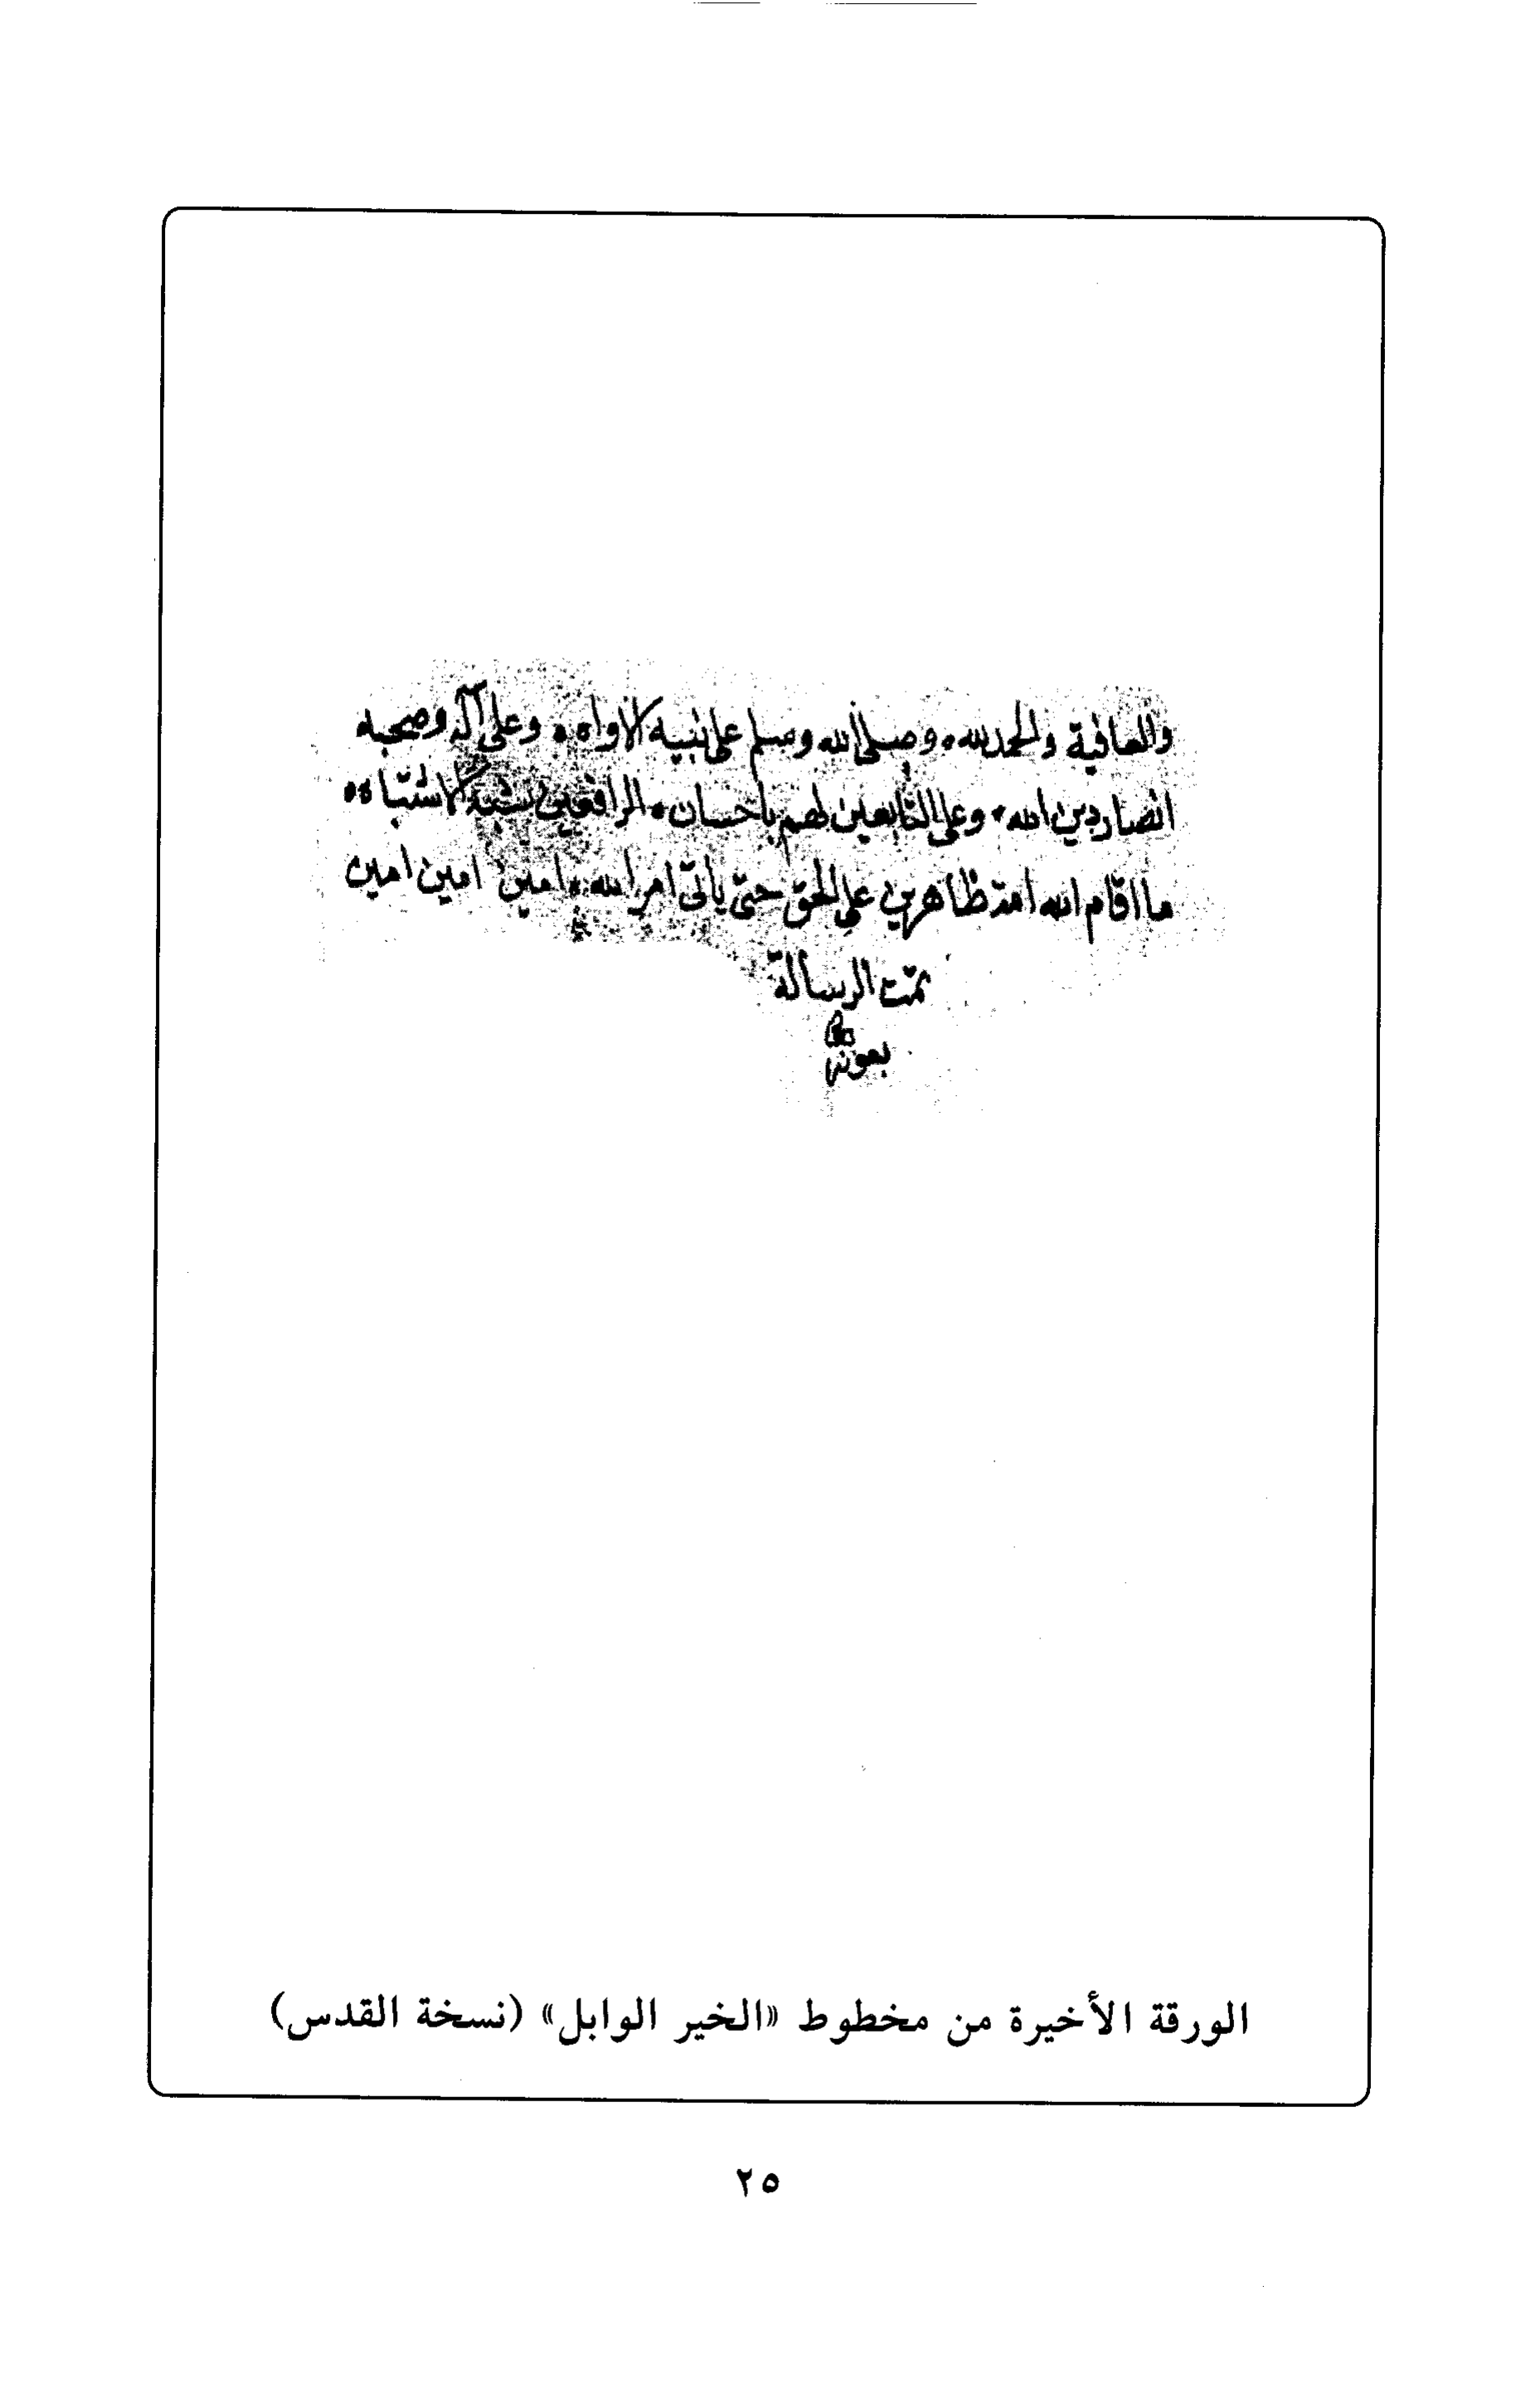 والعافية والحمد لله، وصلى الله وسلم على نبيه الاواه، وعلى آله وصحبه
انصار دين الله، وعلى التابعين لهم باحسان، الرافعين لشبه الاشتباه،
ما اقام الله امة ظاهرين على الحق حتى ياتي امر الله، امين امين امين
تمت الرسالة
بعون الله
الورقة الأخيرة من مخطوط «الخير الوابل» (نسخة القدس)
٢٥